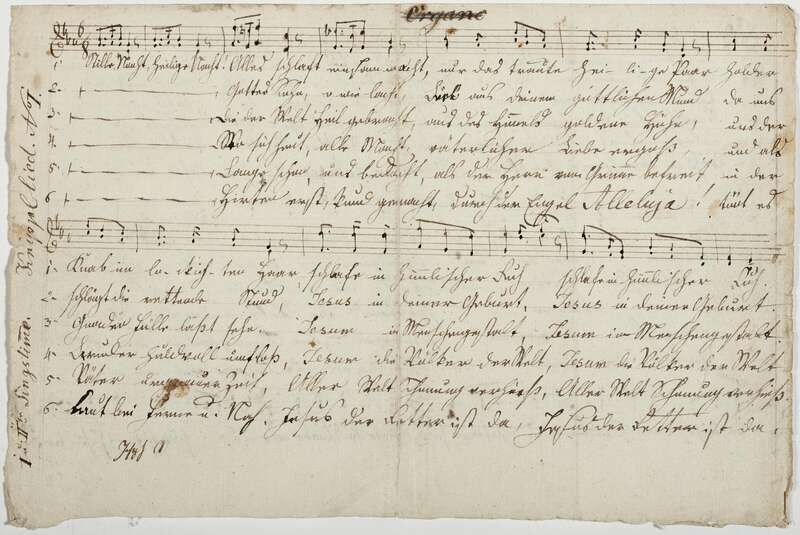 Organo
1. Stille Nacht, heilige Nacht! Alles schlaft einsam wacht, nur das traute hei- li-ge Paar Holder
2. Gottes Sohn, o wie lacht, Lieb aus deinem göttlichen Mund da uns
3. Die der Welt Heil gebracht, aus des Himmels goldene Höhn, uns der
4. Wo sich heut, alle Macht, väterlicher Liebe ergoß, und als
5. Lange schon uns bedacht, als der Herr vom Grimme befreit in der
6. Hirten erst kund gemacht, durch der Engel Alleluja! tönt es
1. Knab im lo-ckich-ten Haar schlafe in himlischer Ruh schlafe in himlischer Ruh.
2. schlägt die rettende Stund, Jesus in deiner Geburt, Jesus in deiner Geburt.
3. Gnaden Fülle läßt sehn. Jesum in Menschengestalt, Jesum in Menschengestalt.
4. Bruder Huldvoll umschloß, Jesum die Völker der Welt, Jesum die Völker der Welt
5. Väter urgrauer Zeit, Aller Welt Schonung verhieß, Aller Welt Schonung verhieß.
6. Laut bei Ferne u. Nah. Jesus der Retter ist da, Jesus der Retter ist da.
Singstime. Kristjgl lied.